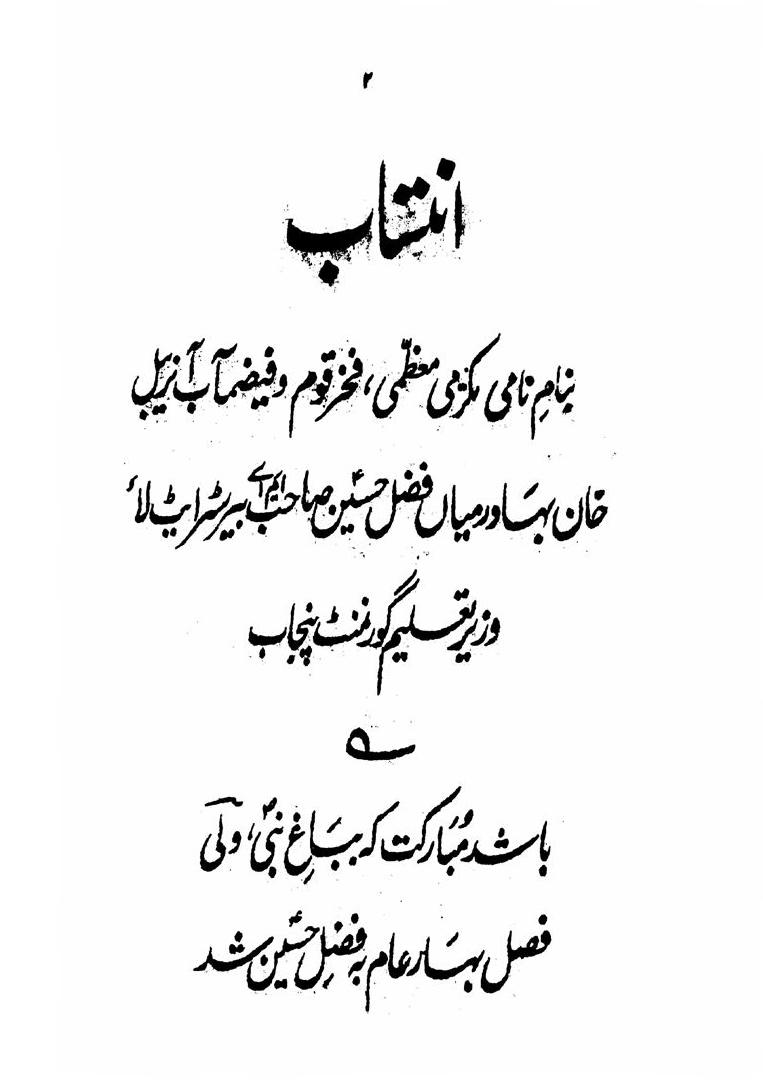 ۲
انتساب
بنامِ نامی مکرّمی معظّمی، فخرِ قوم و فیضمآب آنریبل
خان بہادر میاں فضل حسینؑ صاحب ایم اے بیرسٹر ایٹ لاٴ
وزیر تعلیم گورنمنٹ پنجاب
باشد مُبارکت کہ ببَاغِ نبیؐ، ولی
فصل بہَار عام بہ فضلِ حسینؑ شد